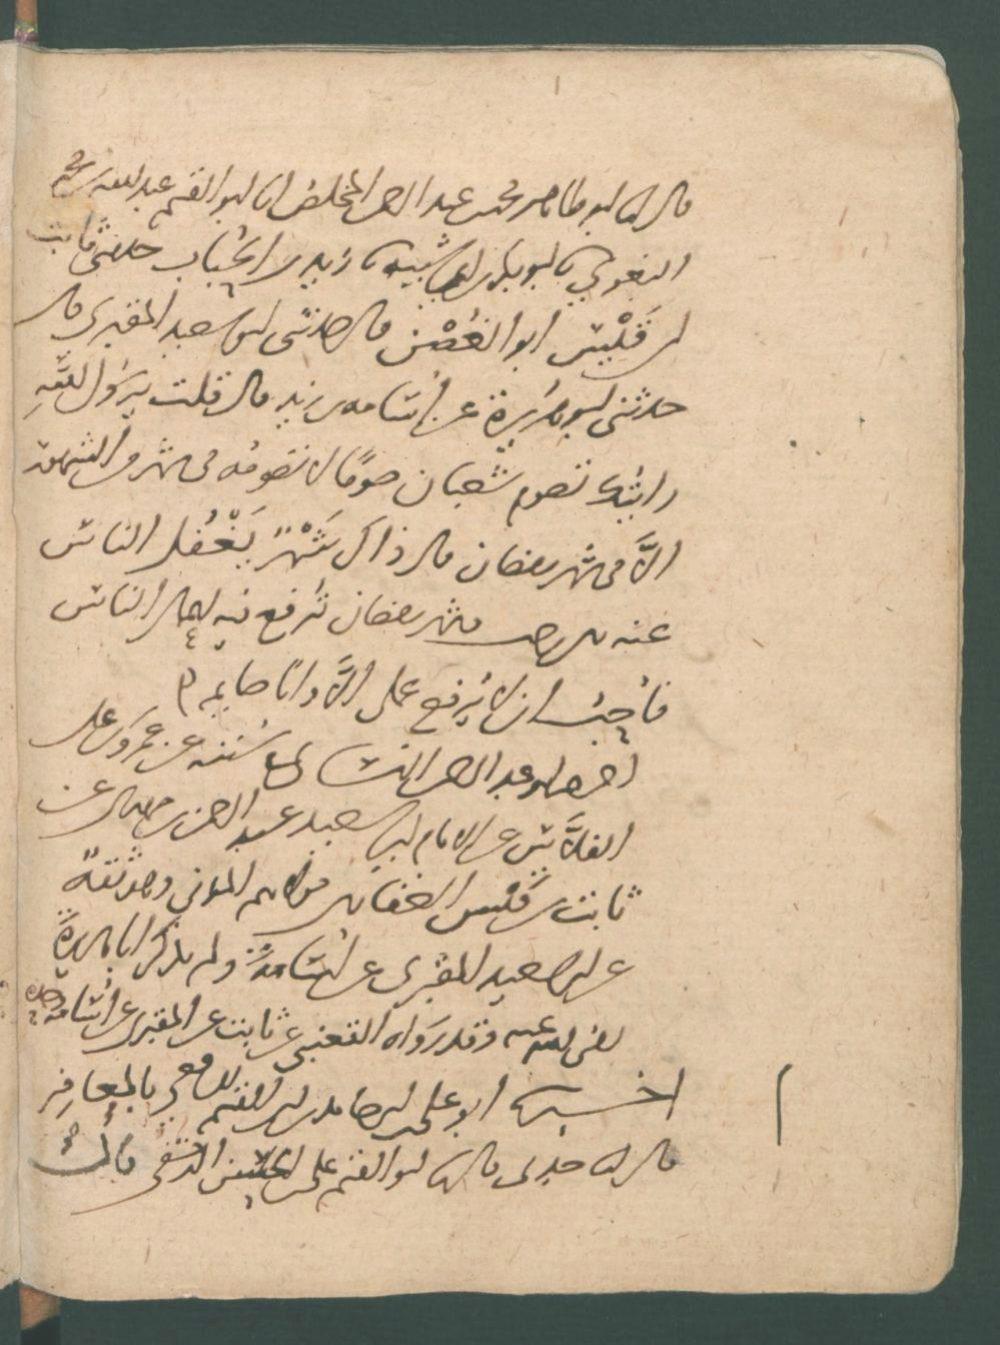 قال انا ابو طاهر محمد بن عبد الرحمن المخلص انا ابو القسم عبد الله بن محمد
البغوي نا ابو بكر بن ابي شيبة نا زيد بن الحباب حدثني ثابت
بن قيس ابو الغصن قال حدثني ابو سعيد المقبري قال
حدثني ابو هريرة عن اسامه بن زيد قال قلت يرسول الله
رايتك تصوم شعبان صومًا لا تصومه في شهر من الشهور
الاَّ في شهر رمضان قال ذاك شَهْرٌ يَغْفُل الناس
عنه بين رجب وشهر رمضان تُرفع فيه اعمال الناس
فأحب ان لا يُرفع عملي الاَّ وانا صايم
اخرجه ابو عبد الرحمن النسائي في سننه عن عمرو بن علي
الفلاَّس عن الامام ابي سعيد عبد الرحمن بن مهدي عن
ثابت بن قيس الغفاري مولاهم المدني وهو ثقة
عن ابي سعيد المقبري عن اسامة ولم يذكر ابا هريرة
وقد رواه القعنبي عن ثابت عن المقبري عن اسامة رضي الله عنه
اخبرنا ابو علي بن ابي القسم بالمعافر
قال انا جدي قال انا ابو القسم علي بن الحسين قال